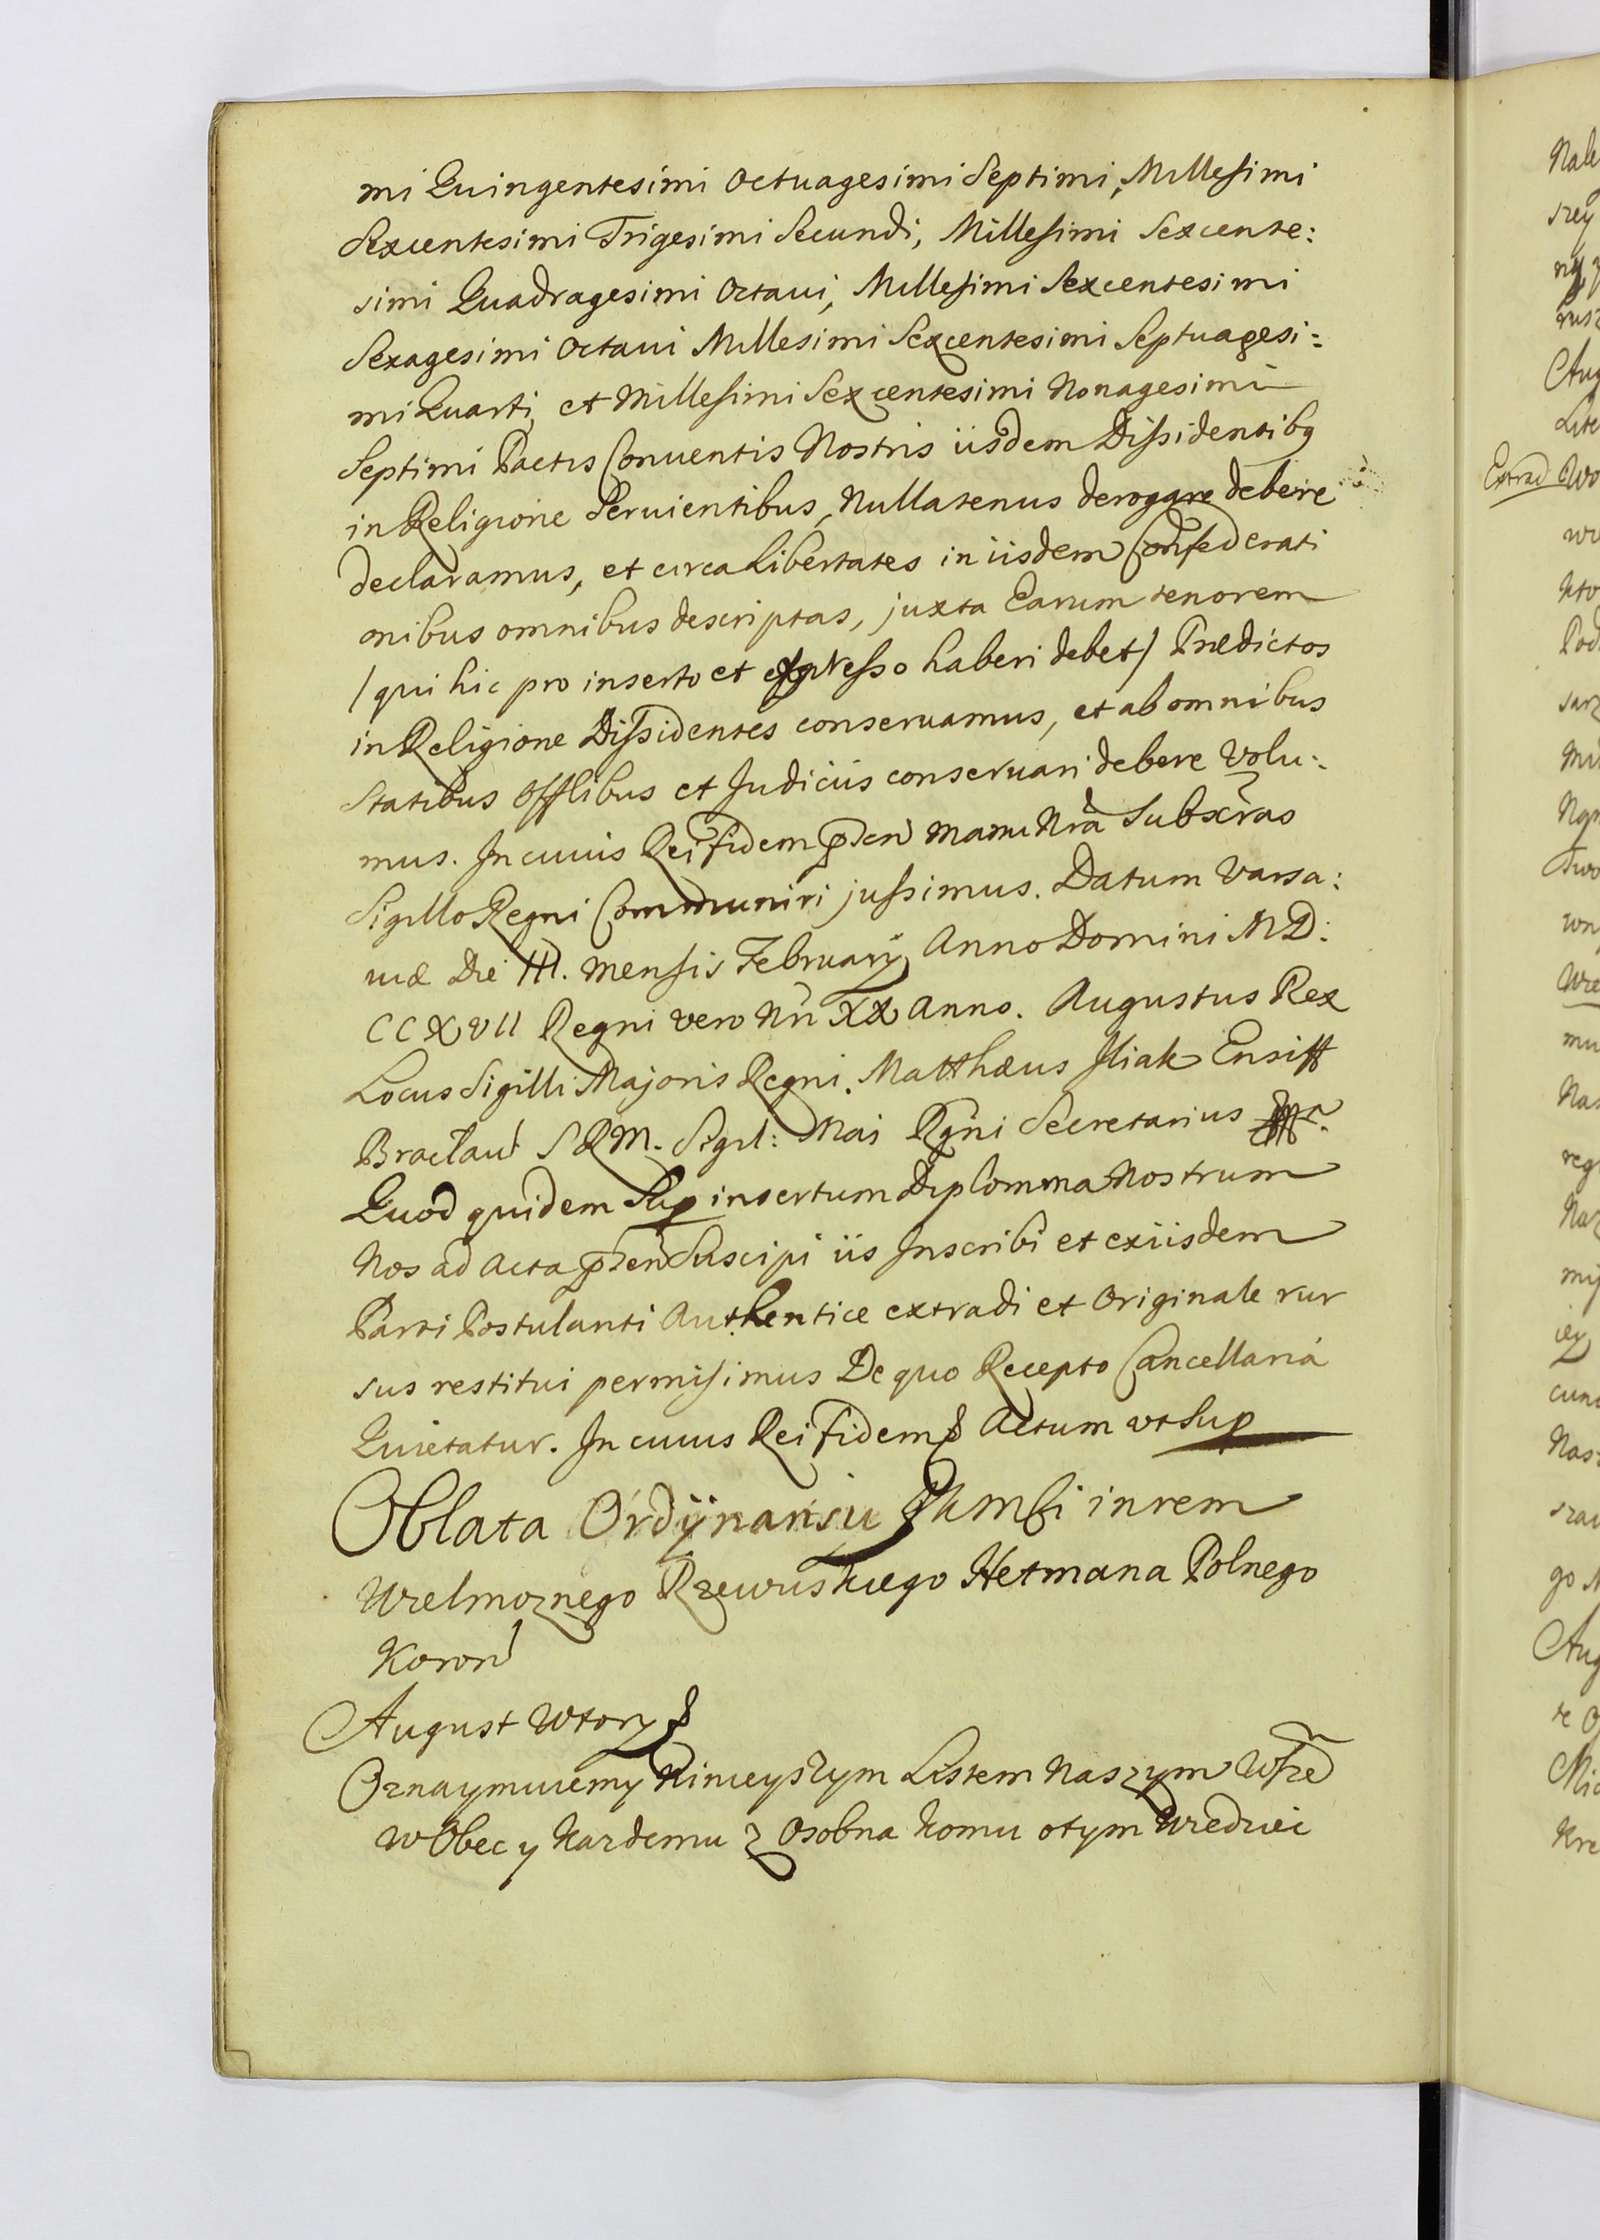 mi Quingentesimi Octuagesimi Septimi, Millesimi
Sexcentesimi Trigesimi Secundi, Millesimi Sexcente:
simi Quadragesimi Octaui, Millesimi Sexcentesimi
Sexagesimi Octaui Millesimi Sexcentesimi Septuagesi:
mi Quarti, et Millesimi Sexcentesimi Nonagesimi
Septimi Pactis Conuentis Nostris iisdem Dissidentibq
in Religione Seruientibus, Nullatenus derogare debere
declaramus, et circa Libertates in iisdem Confederati
onibus omnibus descriptas, juxta Earum tenorem
/qui hic pro inserto et expresso haberi debet/ Prædictos
in Religione Dissidentes conseruamus, et ab omnibus
Statibus Offlibus et Judiciis conseruari debere Volu:
mus. In cuius Rei fidem pnten manu Nra Subscras
Sigillo Regni Communiri jussimus. Datum Varsa:
uiæ Die III. mensis February Anno Domini MD:
CCXVII Regni vero Nri XX Anno. Augustus Rex
Locus Sigilli Majoris Regni. Matthæus Iliak Ensiff
Braclau S R M. Sigil: Mai Rgni Secretarius
Quod quidem Sup insertum Diplomma Nostrum
Nos ad Acta pnten Suscipi iis Inscribi et ex iisdem
Parti Postulanti Authentice extradi et Originale rur
sus restitui permisimus De quo Recepto Cancellaria
Quietatur. In cuius Rei fidem Actum ut Sup
Oblata Ordÿnansu in rem
Wielmoznego Rzewuskiego Hetmana Polnego
Koron
August Wtory
Oznaymuiemy Ninieyszym Listem Naszym Wsze
w Obec y Kazdemu z Osobna komu o tym Wiedziec
Extrad